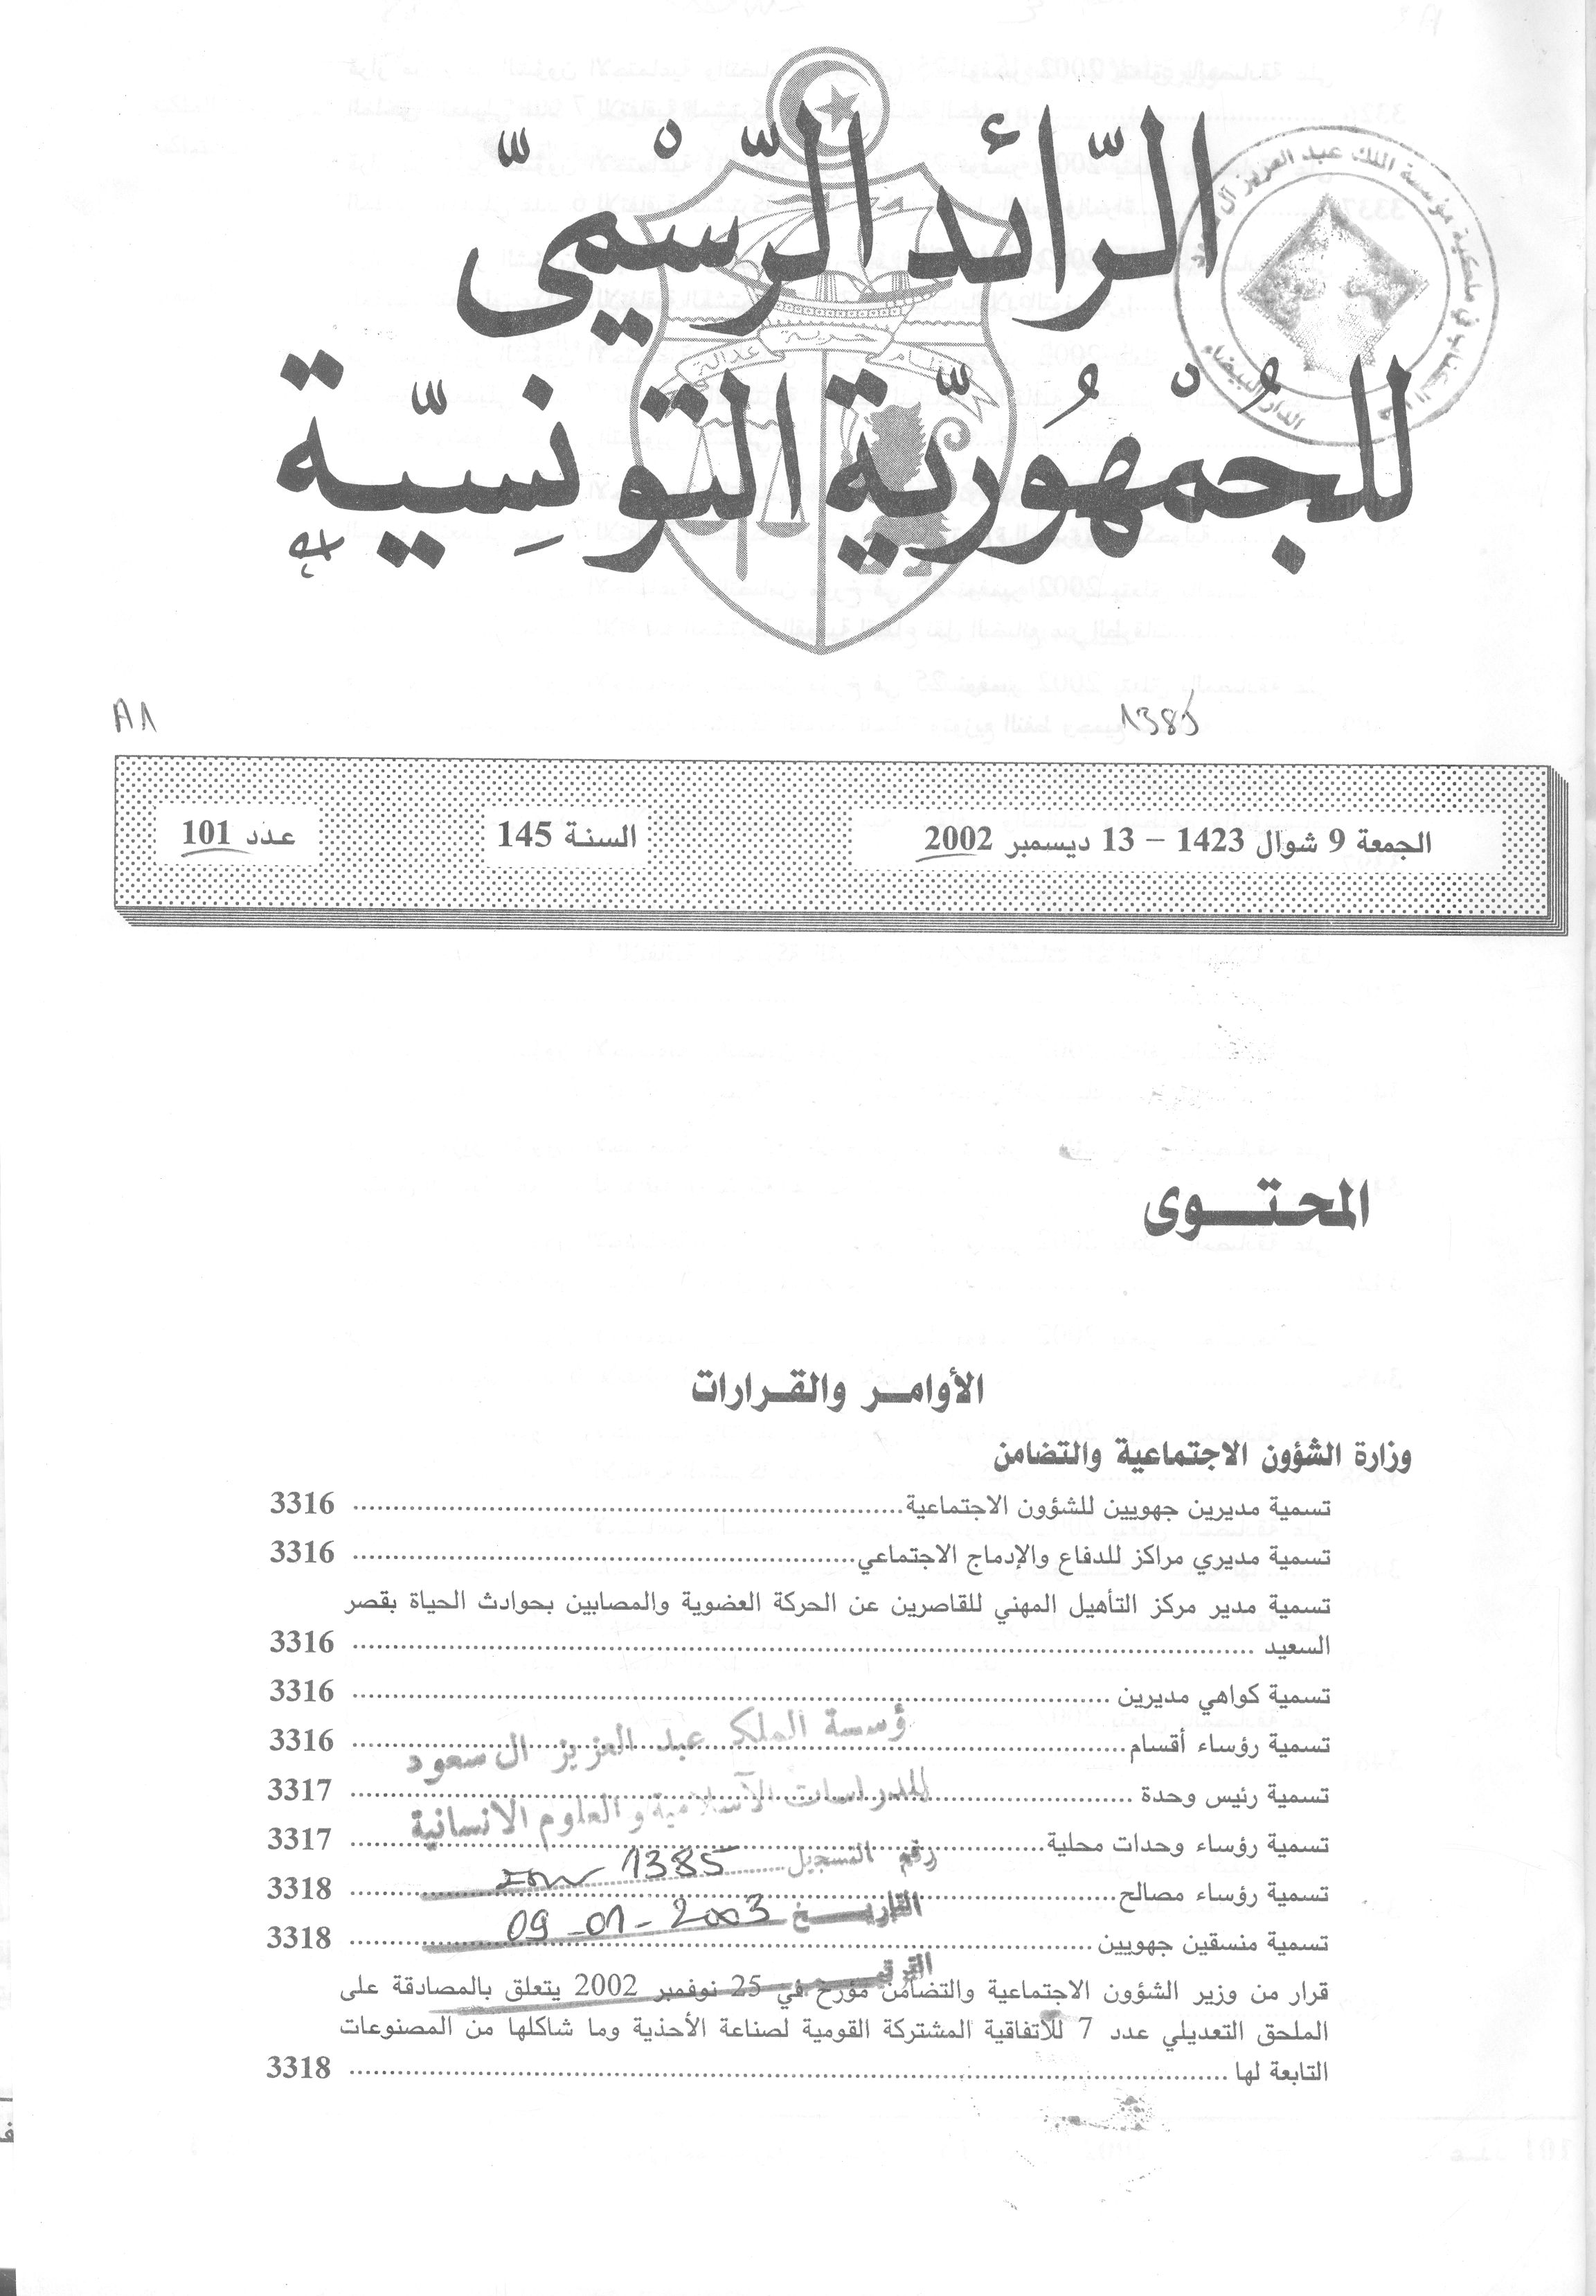 الرّائد الرّسْميّ
للجُمْهُوريّة التّونِسيّة
نظام حرية عدالة
مؤسسة الملك عبد العزيز آل سعود
الدار البيضاء
A1
1385
الجمعة 9 شوال 1423 – 13 ديسمبر 2002
السنة 145
عدد 101
المحتوى
الأوامر والقرارات
وزارة الشؤون الاجتماعية والتضامن
تسمية مديرين جهويين للشؤون الاجتماعية 3316
تسمية مديري مراكز للدفاع والإدماج الاجتماعي 3316
تسمية مدير مركز التأهيل المهني للقاصرين عن الحركة العضوية والمصابين بحوادث الحياة بقصر
السعيد 3316
تسمية كواهي مديرين 3316
تسمية رؤساء أقسام 3316
تسمية رئيس وحدة 3317
تسمية رؤساء وحدات محلية 3317
تسمية رؤساء مصالح 3318
تسمية منسقين جهويين 3318
قرار من وزير الشؤون الاجتماعية والتضامن مؤرخ في 25 نوفمبر 2002 يتعلق بالمصادقة على
الملحق التعديلي عدد 7 للاتفاقية المشتركة القومية لصناعة الأحذية وما شاكلها من المصنوعات
التابعة لها 3318
ؤسسة الملك عبد العزيز ال سعود
للدراسات الآسلامية و العلوم الانسانية
رقم التسجيل 1385
التاريخ 09-01-2003